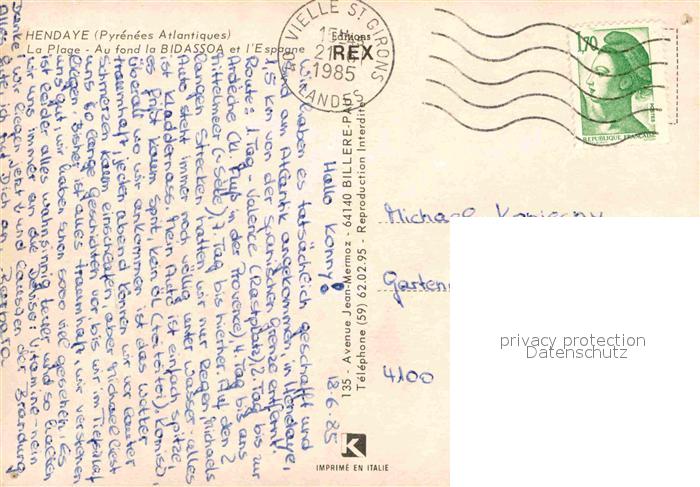 HENDAYE (Pyrénées Atlantiques)
La Plage - Au fond la BIDASSOA et l'Espagne
Editions
REX
VIELLE ST GIRONS
1985
LANDES
1,70
POSTES
REPUBLIQUE FRANÇAISE
135 - Avenue Jean-Mermoz - 64140 BILLERE-PAU
Téléphone (59) 62.02.95 - Reproduction Interdite
K
IMPRIMÉ EN ITALIE
18.6.85
Hallo Konny!
Wir haben es tatsächlich geschafft und
sind am Atlantik angekommen, in Hendaye,
1,5 km von der spanischen Grenze entfernt.
Route: 1. Tag - Valence (Rastplatz) 2. Tag bis zur
Ardèche (kl. Fluß in der Provence), 4. Tag bis ans
Mittelmeer (- Sète), 7. Tag bis hierher. Auf den 2
langen Strecken hatten wir nur Regen, Michaels
Auto steht immer noch völlig unter Wasser - alles
ist kladdernass. Mein Auto ist einfach spitze,
es frißt kaum Sprit, kein Öl (toitoitoi). Komisch,
überall wo wir ankommen ist das Wetter
traumhaft, jeden Abend können wir vor lauter
Schmerzen kaum einschlafen, aber Michael liest
uns so lange Geschichten vor, bis wir im Tiefschlaf
liegen. Bisher ist alles traumhaft, wir verstehen
uns gut, wir haben schon sooo viel gesehen. Es
ist leider alles wahnsinnig teuer und so halten
wir uns immer an die Devise: Vitamine - nein
Danke! Wir liegen jetzt und lauschen der Brandung
Alles Gute, ich ruf Dich an. Barbara
Michael
Garten
4100
privacy protection
Datenschutz